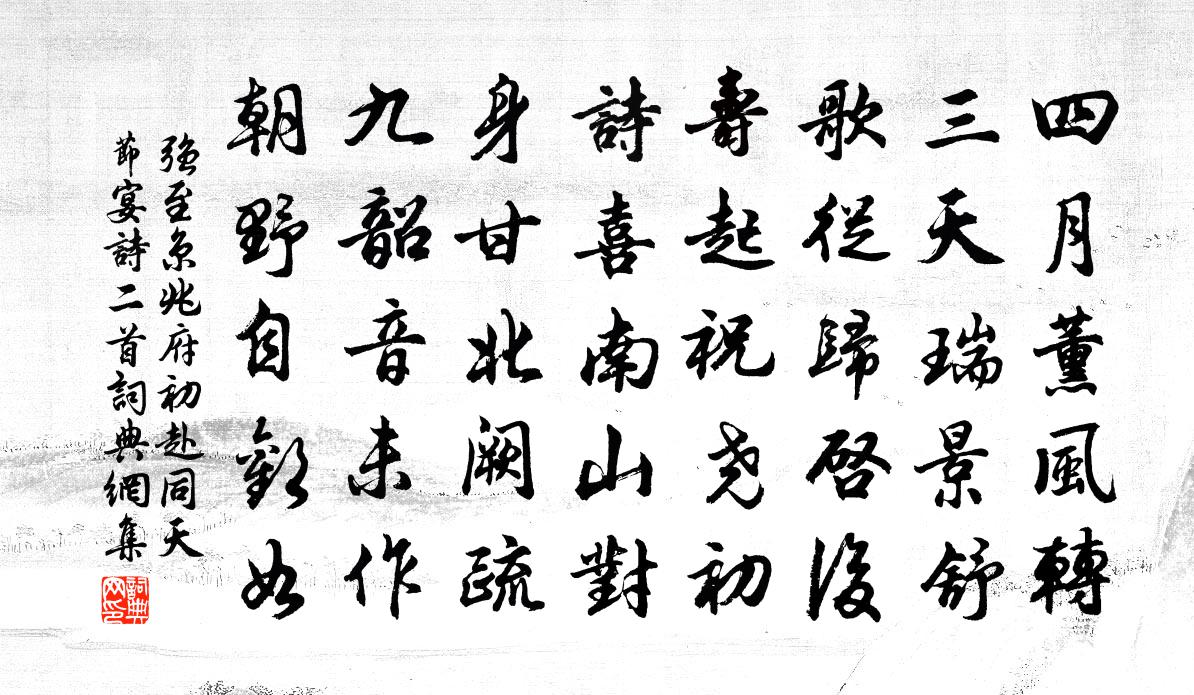 四月薰風轉
三天瑞景舒
歌從歸啓後
壽起祝堯初
詩喜南山對
身甘北闕疏
九韶音未作
朝野自歡如
強至京兆府初赴同天
節宴詩二首詞典網集
詞典
网印